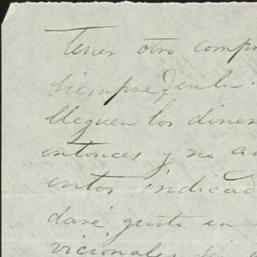 Tener otro compro
siempre
lleguen los diner
entonces y no an
entos indicad
daré gusto en
vicionales si